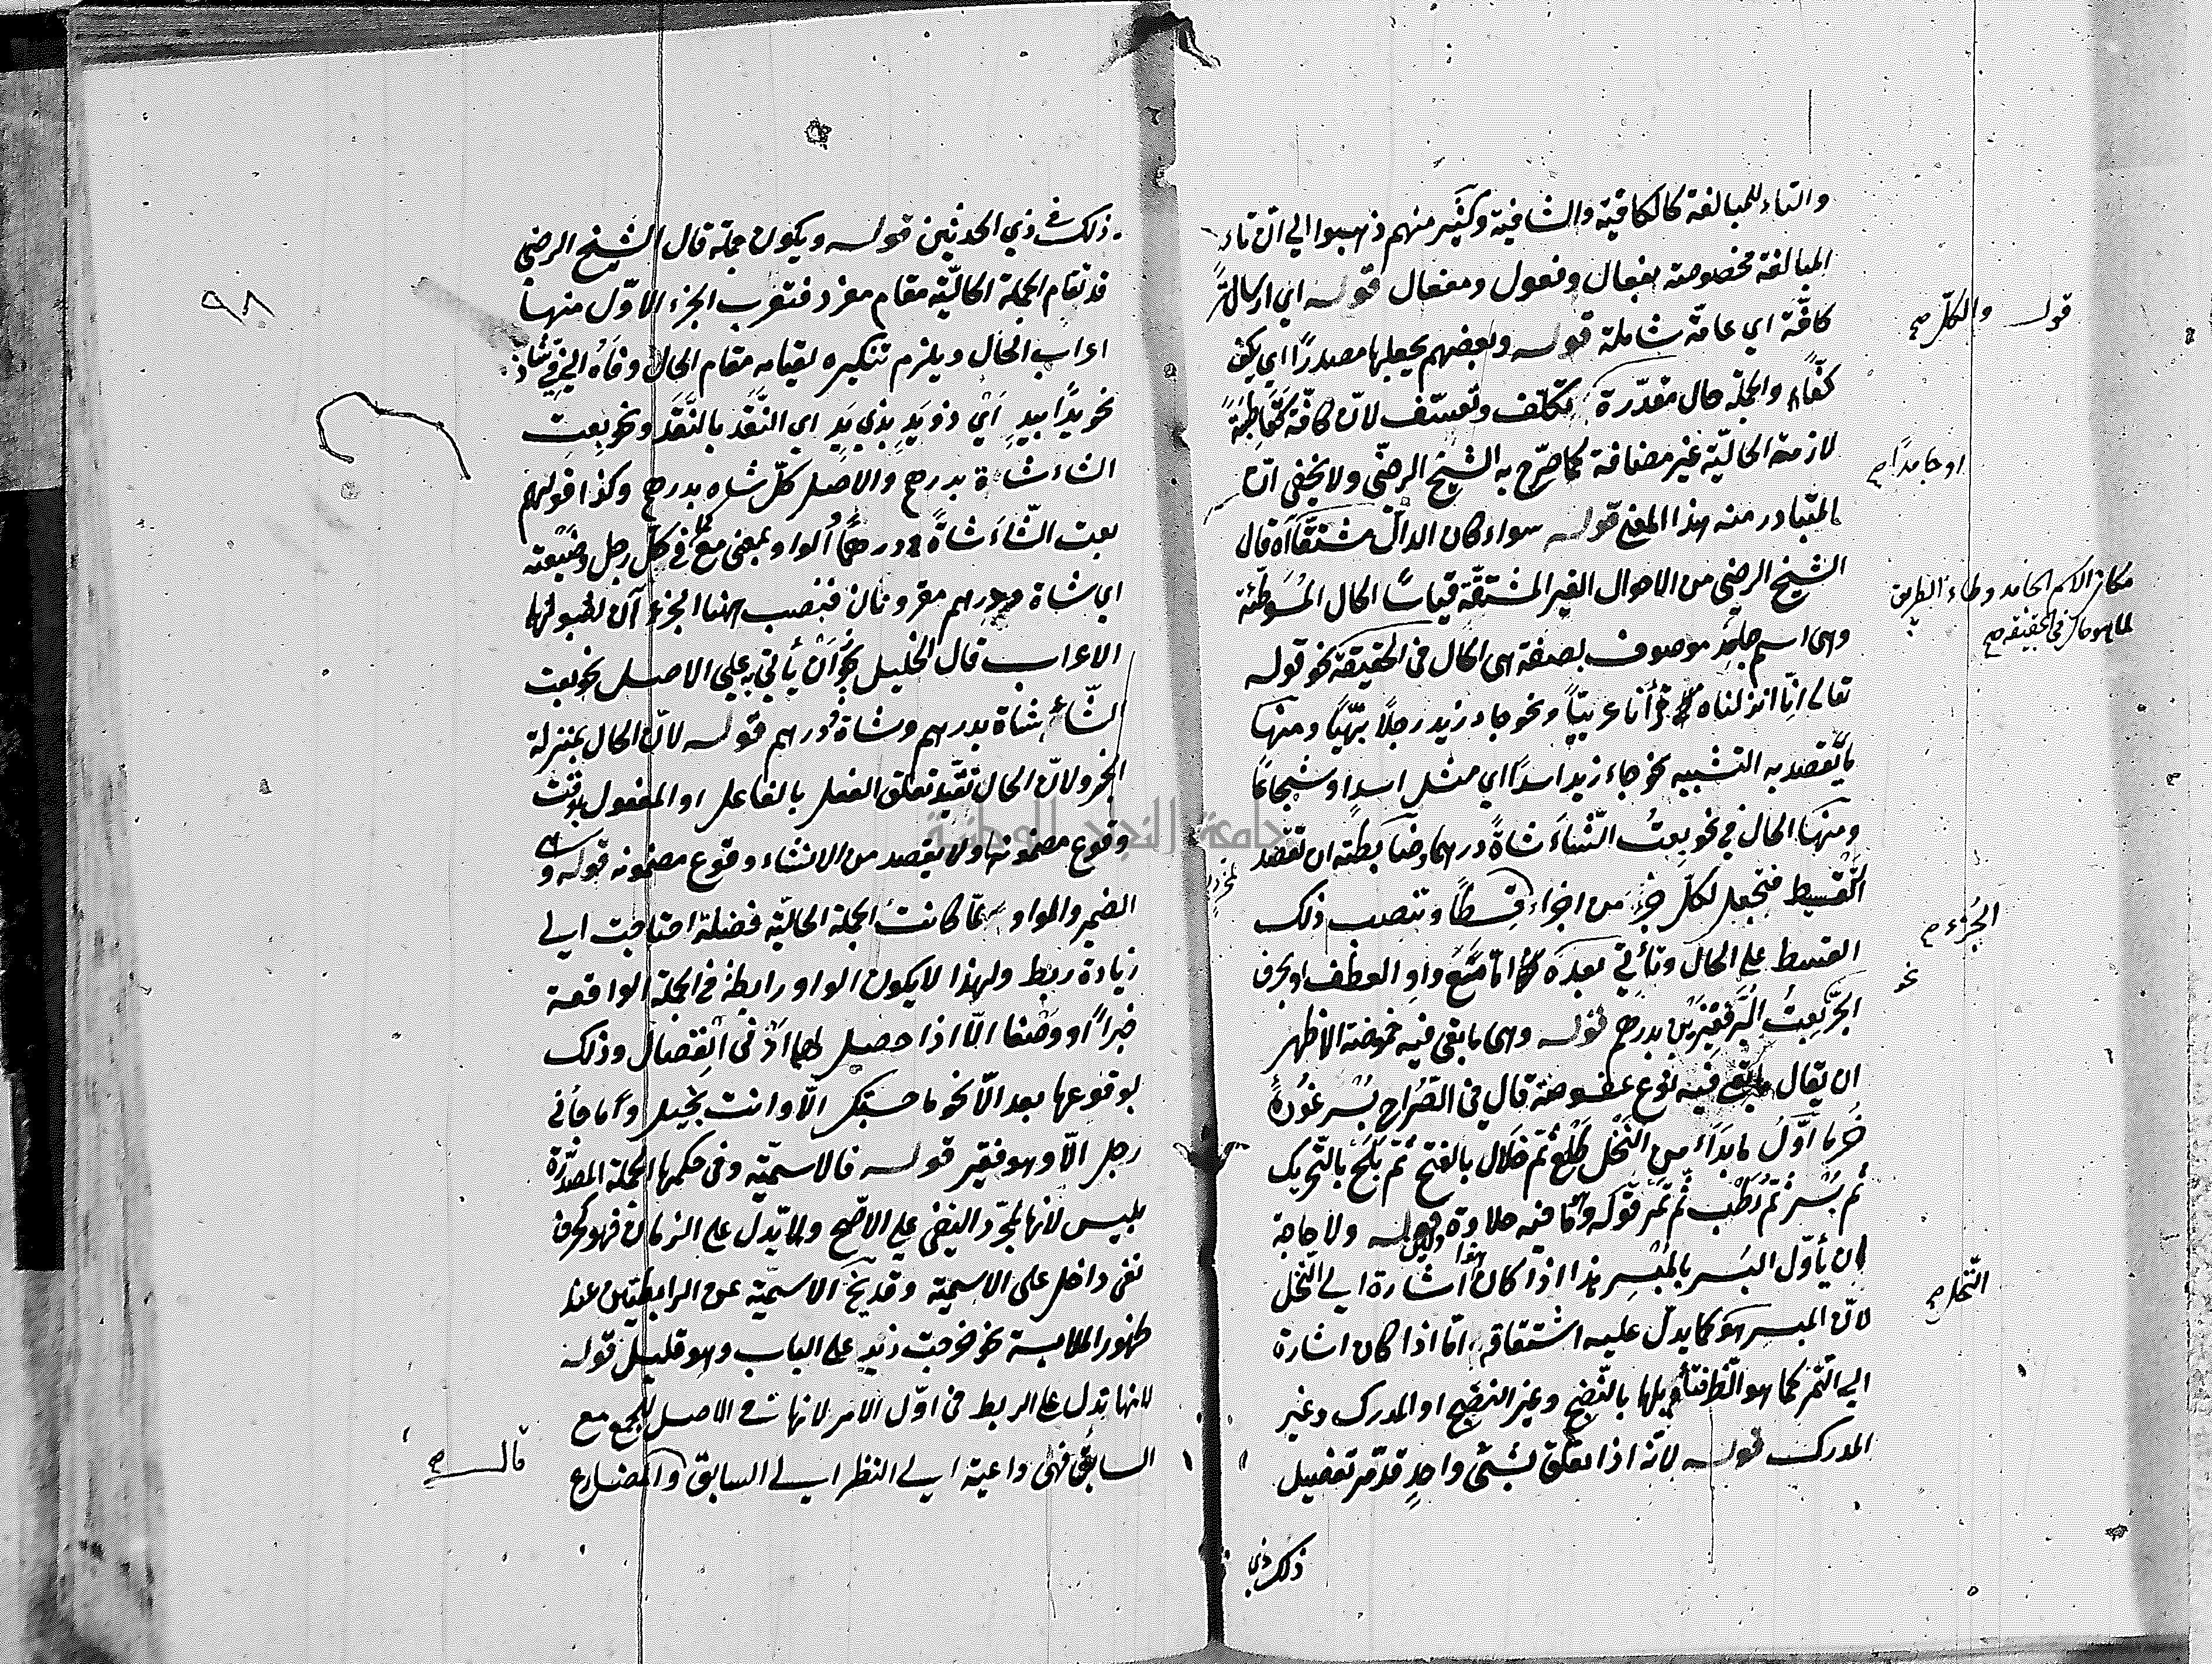 والتاء للمبالغة كالكافية والشافية وكثير منهم ذهبوا الي ان تاء
المبالغة مخصوصة بفعال وفعول ومفعال قوله اي ارسالة
كافة اي عامة شاملة قوله وبعضهم يجعلها مصدرًا اي يكف
كفًا والجملة حال مقدرة تكلف وتعسف لان كافة كقاطبة
لازمة الحالية غير مضافة كما صرح به الشيخ الرضي ولا يخفي ان
المتبادر منه هذا المعني قوله سواء كان الدال مشتقا اه قال
الشيخ الرضي من الاحوال الغير المشتقة قياسًا الحال الموطئة
وهي اسم جامد موصوف بصفة هي الحال في الحقيقة نحو قوله
تعالي انا انزلناه قرأنا عربيًا ونحو جاء زيد رجلًا بهيًا ومنها
ما يقصد به التشبيه نحو جاء زيد اسدًا اي مثل اسد او شجاعًا
ومنها الحال في نحو بعت الشاء شاة درهما وضابطته ان تقصد
التقسيط فتجعل لكل جزء من اجزاء قسطًا وتنصب ذلك
القسط علي الحال وتأتي بعده اما مع واو العطف او بحرف
الجر بعت البر قفيزين بدرهم قوله وهي ما بقي فيه حموضة الاظهر
ان يقال ما بقي فيه نوع عفوصة قال في الصراح بسر غوره
خرما اول ما بدا من النخل طلع ثم خلال بالفتح ثم بلح بالتحريك
ثم بسر ثم رطب ثم تمر قوله واما فيه حلاوة قوله ولا حاجة
ان يأول البسر بالمبسر هذا اذا كان هذا اشارة الي النخل
لان المبسر هو كما يدل عليه اشتقاقه اما اذا كان اشارة
الي التمر كما هو الظ فتأويلها بالنضيج وغير النضيج او المدرك وغير
المدرك قوله لانه اذا تعلق بشئ واحد قدم تفضيل
ذلك في
قوله والكل صح
او جامدًا صح
فكان الاسم الجامد وطاء الطريق
لما هو حال في الحقيقة صح
الجزء صح
نحو
النخل صح
ذلك في ذي الحدثين قوله ويكون جملة قال الشيخ الرضي
قد تقام الجملة الحالية مقام مفرد فتعرب الجزء الاول منها
اعراب الحال ويلزم تنكيره لقيامه مقام الحال وفاه الي في شاذ
نحو يدًا بيد اي ذو يد بذي يد اي النقد بالنقد ونحو بعت
الشاء شاة بدرهم والاصل كل شاه بدرهم وكذا قولهم
بعت الشاء شاة ودرهمًا الواو بمعني مع كما في كل رجل وضيعته
اي شاة ودرهم مقرونان فنصب هنا الجزء آن لقبولهما
الاعراب قال الخليل يجوز ان يأتي به علي الاصل نحو بعت
الشاء شاة بدرهم وشاة ودرهم قوله لان الحال بمنزلة
الخبر ولان الحال تقيد تعلق الفعل بالفاعل او المفعول بوقت
وقوع مضمونه ولا يقصد من الانشاء وقوع مضمونه قوله وهي
الضمير والواو لما كانت الجملة الحالية فضلة احتاجت الي
زيادة ربط ولهذا لا يكون الواو رابطة في الجملة الواقعة
خبرًا او وصفا الا اذا حصل لها ادني انفصال وذلك
بوقوعها بعد الا نحو ما حسبتك الا وانت بخيل وما جاءني
رجل الا وهو فقير قوله فالاسمية وفي حكمها الجملة المصدرة
بليس لانها لمجرد النفي علي الاصح ولا يدل علي الزمان فهو كحرف
نفي داخل علي الاسمية وقد يخ الاسمية عن الرابطتين عند
ظهور الملابسة نحو خرجت زيد علي الباب وهو قليل قوله
لانها تدل علي الربط في اول الامر لانها في الاصل للجمع مع
السابق فهي داعية الي النظر الي السابق والمضارع
٩٨
قال صح
جامعة النجاح الوطنية